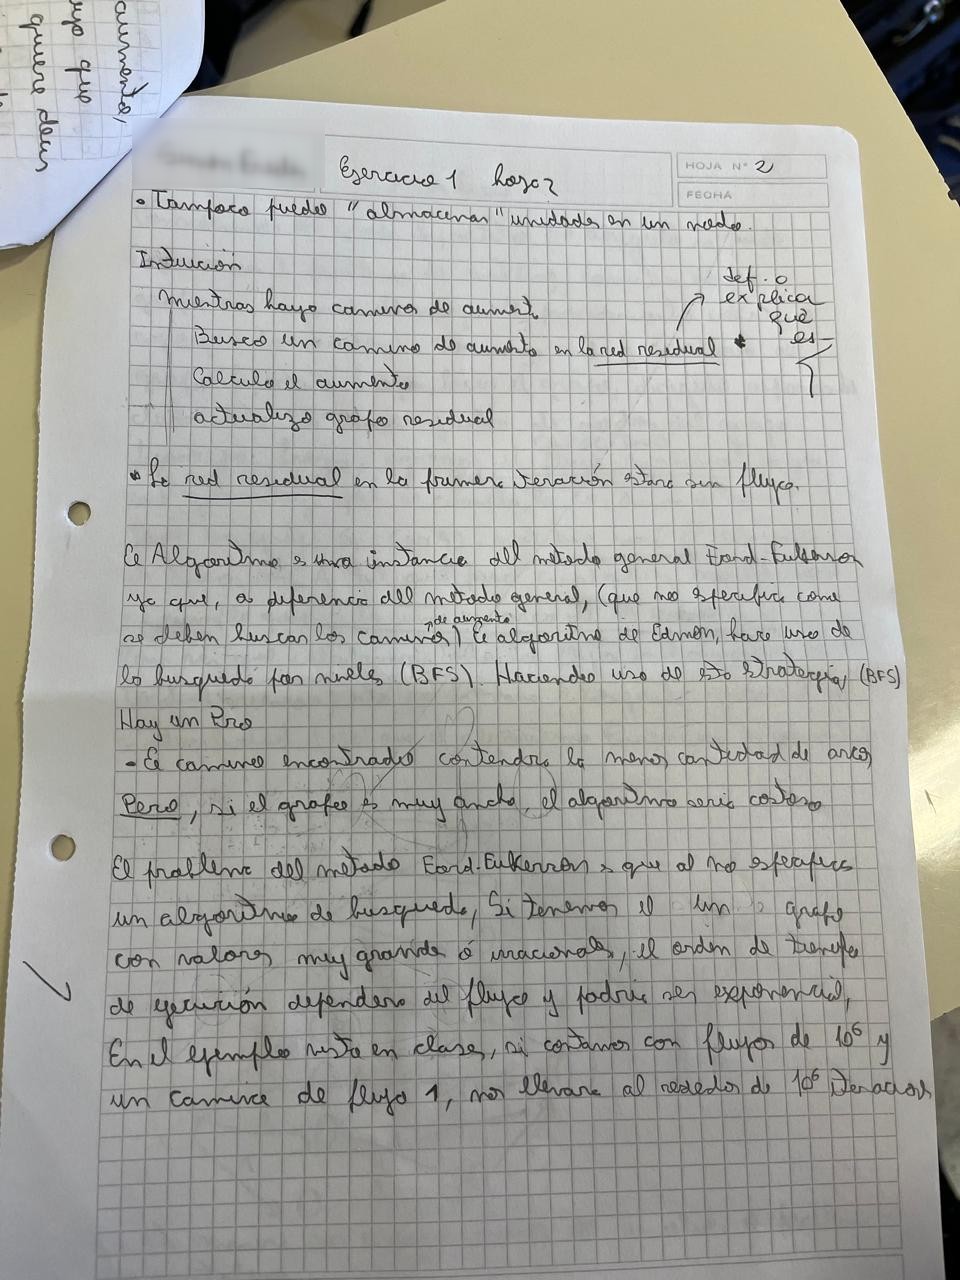 aumento,
yo que
quiere decir
Ejercicio 1 hoja 2
HOJA N° 2
FECHA
• Tampoco puedo "almacenar" unidades en un nodo.
Intuición
Mientras haya caminos de aument.
Busco un camino de aumento en la red residual *
def. o
explica
que
es
Calculo el aumento
actualizo grafo residual
* La red residual en la primera iteración estara sin flujo.
El Algoritmo es una instancia del metodo general Ford-Fulkerson
ya que, a diferencia del metodo general, (que no especifica como
se deben buscar los caminos de aumento) El algoritmo de Edmon, hace uso de
la busqueda por niveles (BFS). Haciendo uso de esta estrategia, (BFS)
Hay un Pero
- El camino encontrado contendra la menor cantidad de arcos
Pero, si el grafo es muy ancho, el algoritmo seria costoso
El problema del metodo Ford-Fulkerson es que al no especificar
un algoritmo de busqueda, Si tenemos el un grafo
con valores muy grande ó irracionales, el orden de tiempo
de ejecución dependera del flujo y podria ser exponencial,
En el ejemplo visto en clase, si contamos con flujos de 10⁶ y
un camino de flujo 1, nos llevara al rededor de 10⁶ iteraciones